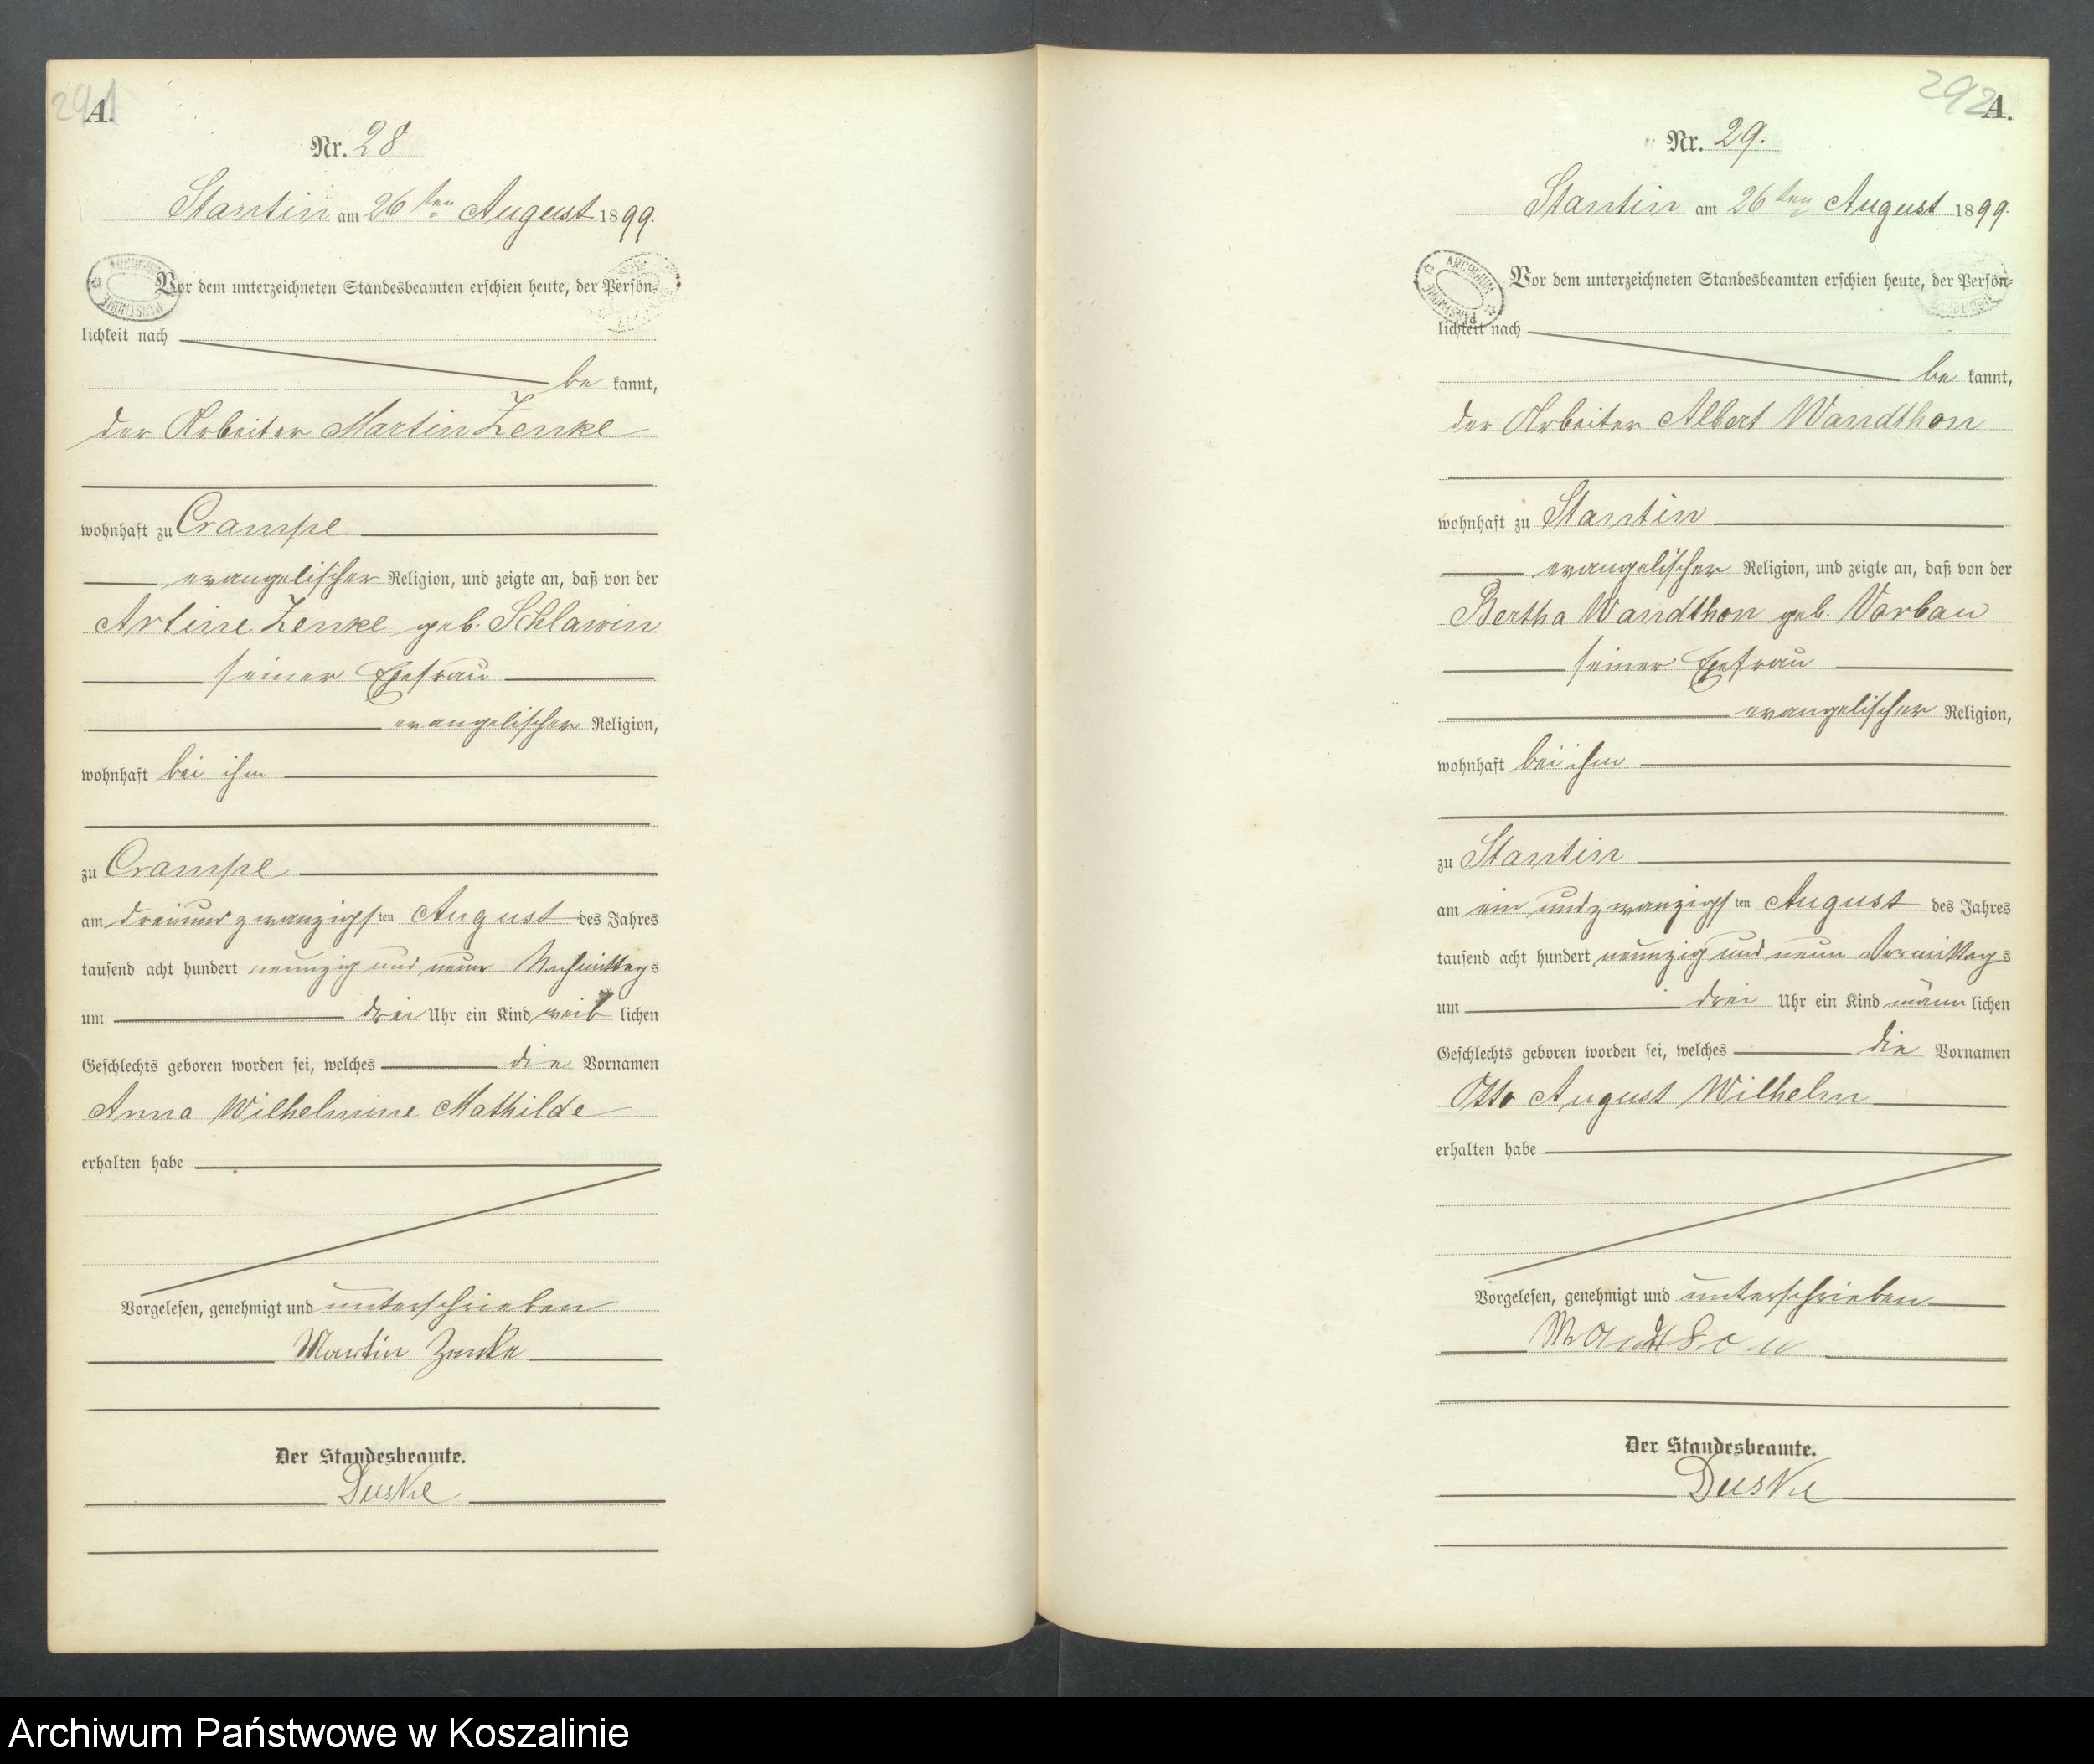 291
A.
Nr. 28
Stantin am 26ten August 1899.
Vor dem unterzeichneten Standesbeamten erschien heute, der Persön-
lichkeit nach
be kannt,
der Arbeiter Martin Zenke
wohnhaft zu Crampe
evangelischer Religion, und zeigte an, daß von der
Zenke geb. Schlawin
seiner Ehefrau
evangelischer Religion,
wohnhaft bei ihm
zu Crampe
am dreiundzwanzigsten August des Jahres
tausend acht hundert neunzig und neun Nachmittags
um drei Uhr ein Kind weib lichen
Geschlechts geboren worden sei, welches die Vornamen
Anna Wilhelmine Mathilde
erhalten habe
Vorgelesen, genehmigt und unterschrieben
Martin Zenke
Der Standesbeamte.
Duske
292
A.
Nr. 29.
Stantin am 26ten August 1899.
ARCHIWUM PAŃSTWOWE
Vor dem unterzeichneten Standesbeamten erschien heute, der Persön-
lichkeit nach
be kannt,
der Arbeiter Albert Wandthon
wohnhaft zu Stantin
evangelischer Religion, und zeigte an, daß von der
Bertha Wandthon geb. Varbau
seiner Ehefrau
evangelischer Religion,
wohnhaft bei ihm
zu Stantin
am ein und zwanzigsten August des Jahres
tausend acht hundert neunzig und neun Vormittags
um drei Uhr ein Kind männ lichen
Geschlechts geboren worden sei, welches die Vornamen
Otto August Wilhelm
erhalten habe
Vorgelesen, genehmigt und unterschrieben
Der Standesbeamte.
Duske
Archiwum Państwowe w Koszalinie